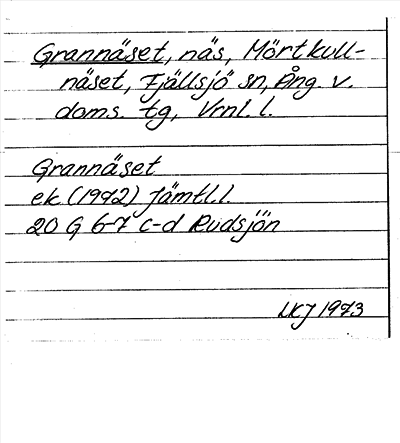 Grannäset, näs, Mörtkull-
näset, Fjällsjö sn, Ång. v.
doms. tg, Vrnl. l.
Grannäset
ek. (1972) Jämtl. l.
20 G 6-7 c-d Rudsjön
LKJ 1973